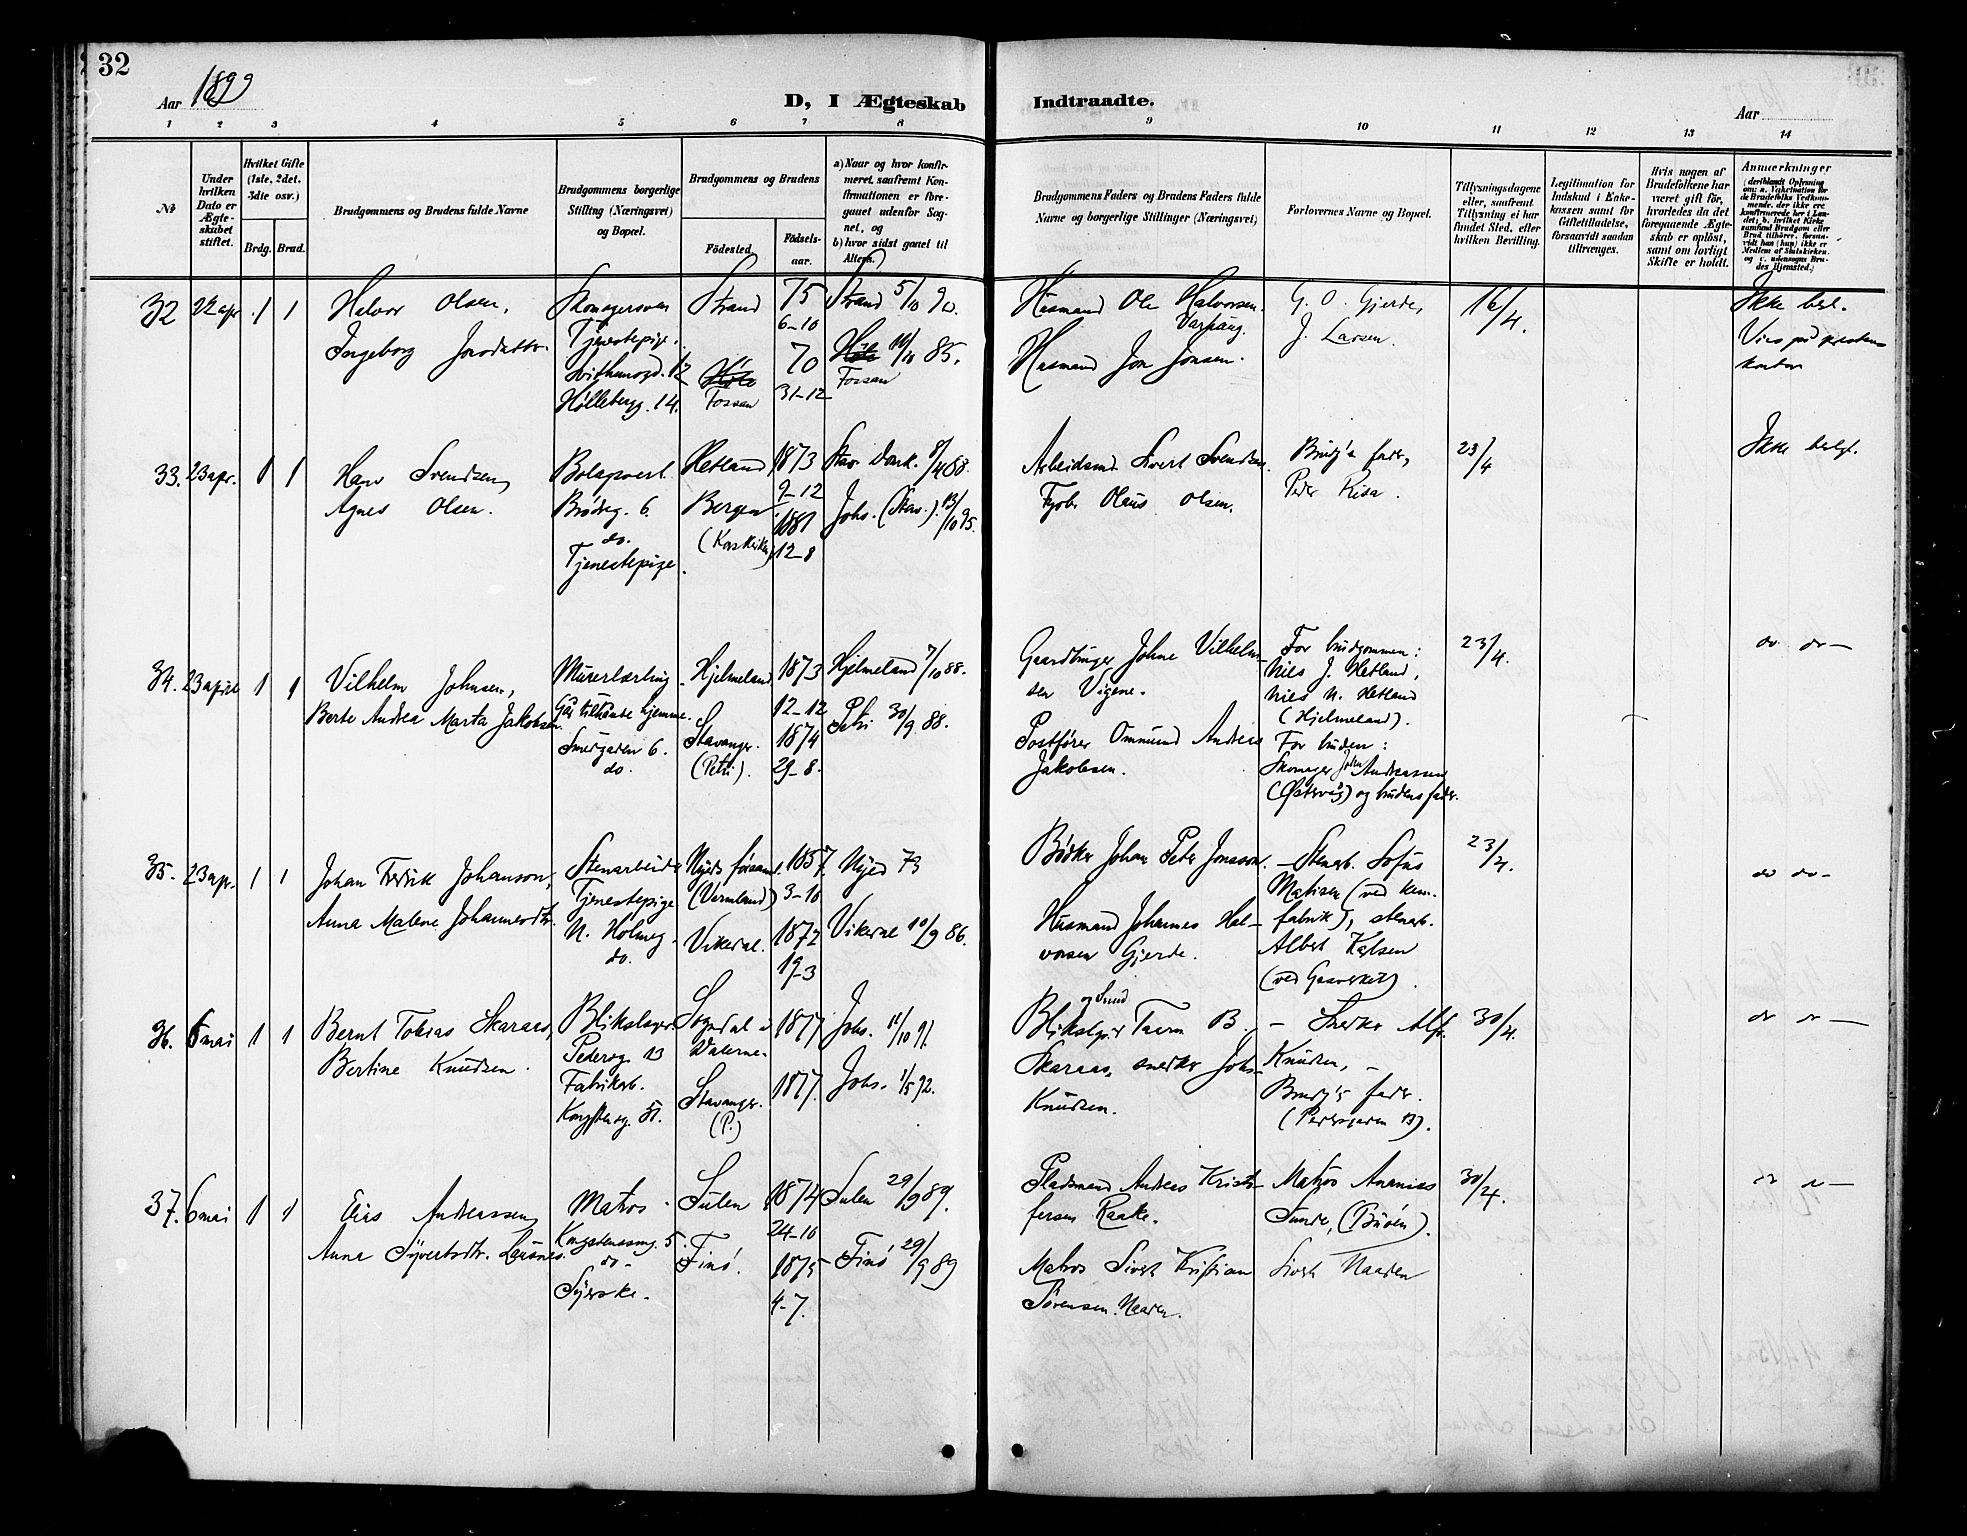 32
Aar 1899
D, I Ægteskab Indtraadte.
Aar
1 2 3 4 5 6 7 8 9 10 11 12 13 14
№
Under hvilken Dato er Ægteskabet stiftet.
Hvilket Gifte (1ste, 2det, 3die osv.)
Brdg. Brud.
Brudgommens og Brudens fulde Navne
Brudgommens borgerlige Stilling (Næringsvei) og Bopæl.
Brudgommens og Brudens
Fødested.
Fødselsaar.
a) Naar og hvor konfirmeret, saafremt Konfirmationen er foregaaet udenfor Sognet, og
b) hvor sidst gaaet til Alters.
Brudgommens Faders og Brudens Faders fulde Navne og borgerlige Stillinger (Næringsvei)
Forlovernes Navne og Bopæl.
Tillysningsdagene eller, saafremt Tillysning ei har fundet Sted, efter hvilken Bevilling.
Legitimation for Indskud i Enkekassen samt for Giftetilladelse, forsaavidt saadan tiltrænges.
Hvis nogen af Brudefolkene har været gift før, hvorledes da det foregaaende Ægteskab er opløst, samt om lovligt Skifte er holdt.
Anmærkninger
32 22 apr. 1 1
Halvor Olsen,
Ingeborg Jonsdatter.
Skomagersven
Tjenestepige.
Hølleberg. 14.
Strand
Fossan
75
6–10
70
31–12
Strand 5/10 90.
85.
Fossan
Husmand Ole Halvorsen
Husmand Jon Jonsen.
G. O. Gjerde,
J. Larsen.
16/4.
Ikke besl.
Vies på prestens
kontor
33. 23 apr. 1 1
Hans Svendsen,
Agnes Olsen.
Brødreg. 6.
do.
Tjenestepige
Hetland
Bergen
(Korskirken)
1873
9–12
1881
12–8
Stav. Domk. 8/4 88.
Johs. (Stav.) 13/10 95.
Arbeidsmd. Sivert Svendsen.
Fyrb. Olaus Olsen.
Brudg's fader,
Peder Risa.
23/4
Ikke beslgt.
34. 23 april 1 1
Vilhelm Johnsen,
Berte Andrea Marta Jakobsen
Murerlærling
Går tilhånde hjemme.
Smedgaden 6.
do.
Hjelmeland
Stavanger.
(Petri).
1873
12–12
1874
29–8.
Hjelmeland 7/10 88.
Petri 30/9 88.
Gaardbruger Johne Vilhelm-
sen Vigene.
Postfører Ommund Andreas
Jakobsen.
For brudgommen:
Nils J. Hetland,
Nils N. Hetland
(Hjelmeland).
For bruden:
Skomager John Andreassen
(Østervåg) og brudens fader.
23/4.
do do –
35. 23 apr. 1 1
Johan Fredrik Johanson,
Anna Malene Johannesdtr.
Stenarbeider
Tjenestepige
N. Holmeg.
do.
Nyeds forsaml.
(Vermland)
Vikedal.
1857.
3–10
1872
19–3
Nyed 73
Vikedal 10/9 86.
Bødker Johan Peter Jonsson.
Husmand Johannes Hal-
vorsen Gjerde.
– Stenarb. Sofus
Matisen (ved kem.
fabrik), stenarb.
Albert Karlsen
(ved Gasverket).
23/4.
do do –
36. 6 mai 1 1
Bernt Tobias Skaraas,
Bertine Knudsen.
Blikslager
Pedersg. 13
Fabrikarb.
Kongsteng. 51.
Sogndal i
Dalerne.
Stavanger.
(P.)
1877
1877.
Johs. 11/10 91.
Johs. 1/5 92.
og Smed
Blikslgr. Tarm B.
Skaraas, snedker Johs
Knudsen.
– Snedker Alf.
Knudsen, –
Brudg's fader.
(Pedersgaden 13).
30/4.
do do –
37. 6 mai 1 1
Elias Andreassen,
Anna Syvertsdtr. Leirnes.
Matros.
Kongstensg. 5.
do –
Syerske.
Sulen
Finø.
1874
24–10
1875
4–7.
Sulen 29/9 89.
Finø 29/9 89
Pladsmand Andreas Kristo-
fersen Raake.
Matros Sivert Kristian
Sørensen Naaden.
Matros Ananias
Sunde, (Buøen).
Sivert Naaden
30/4.
do do –